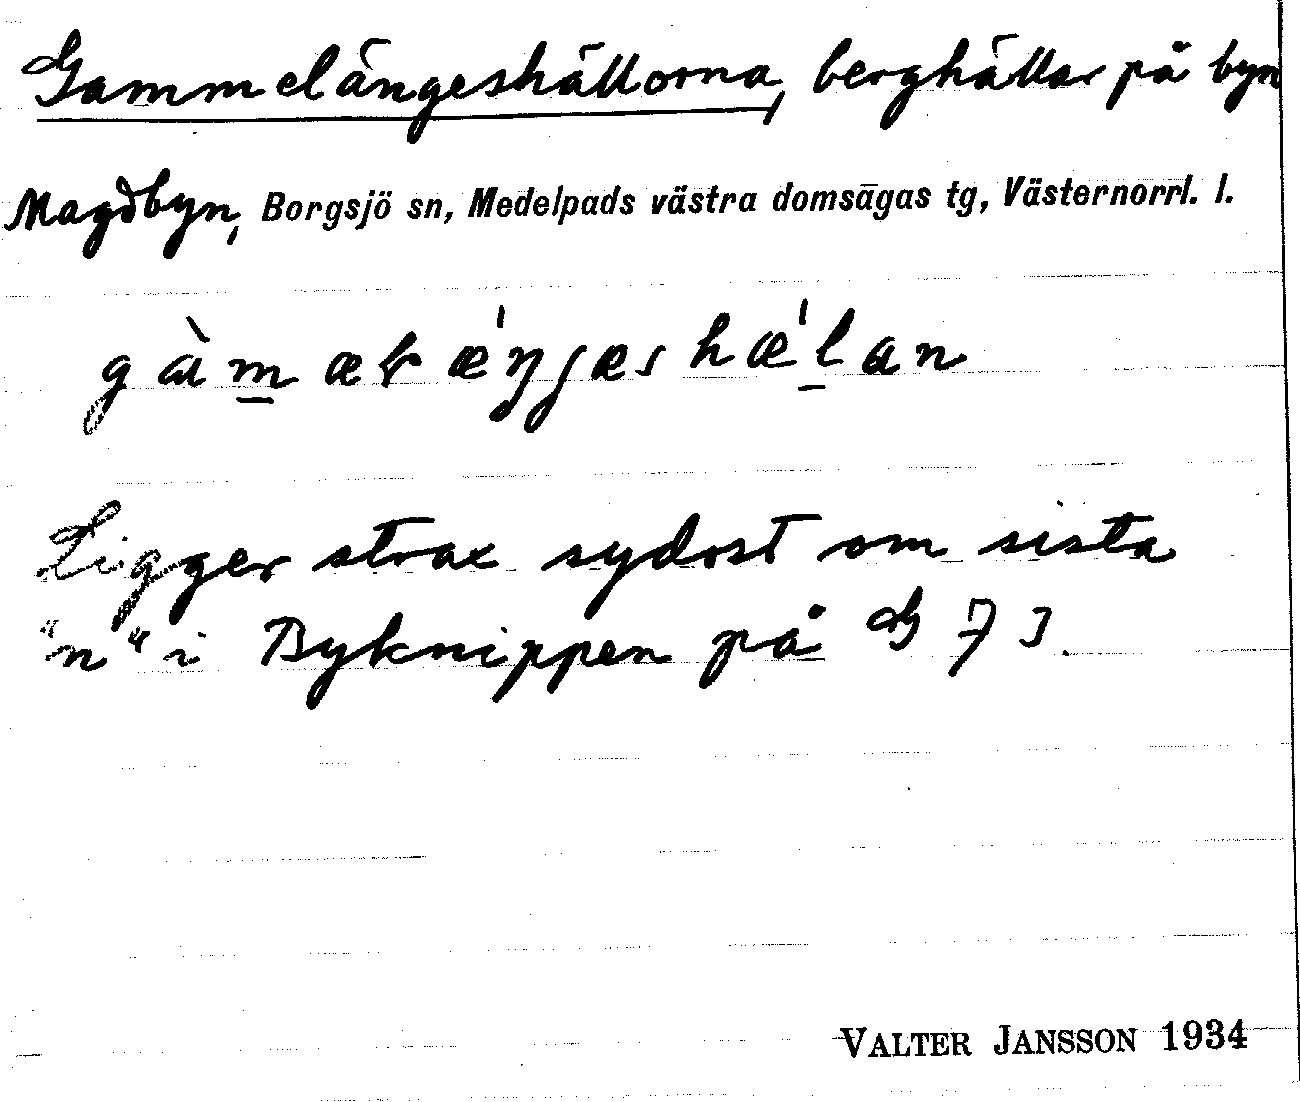 Gammelängeshällorna, berghällar på byn
Magdbyn, Borgsjö sn, Medelpads västra domsagas tg, Västernorrl. l.
Ligger strax sydost om sista
"n" i Byknippen på G 7 J.
VALTER JANSSON 1934